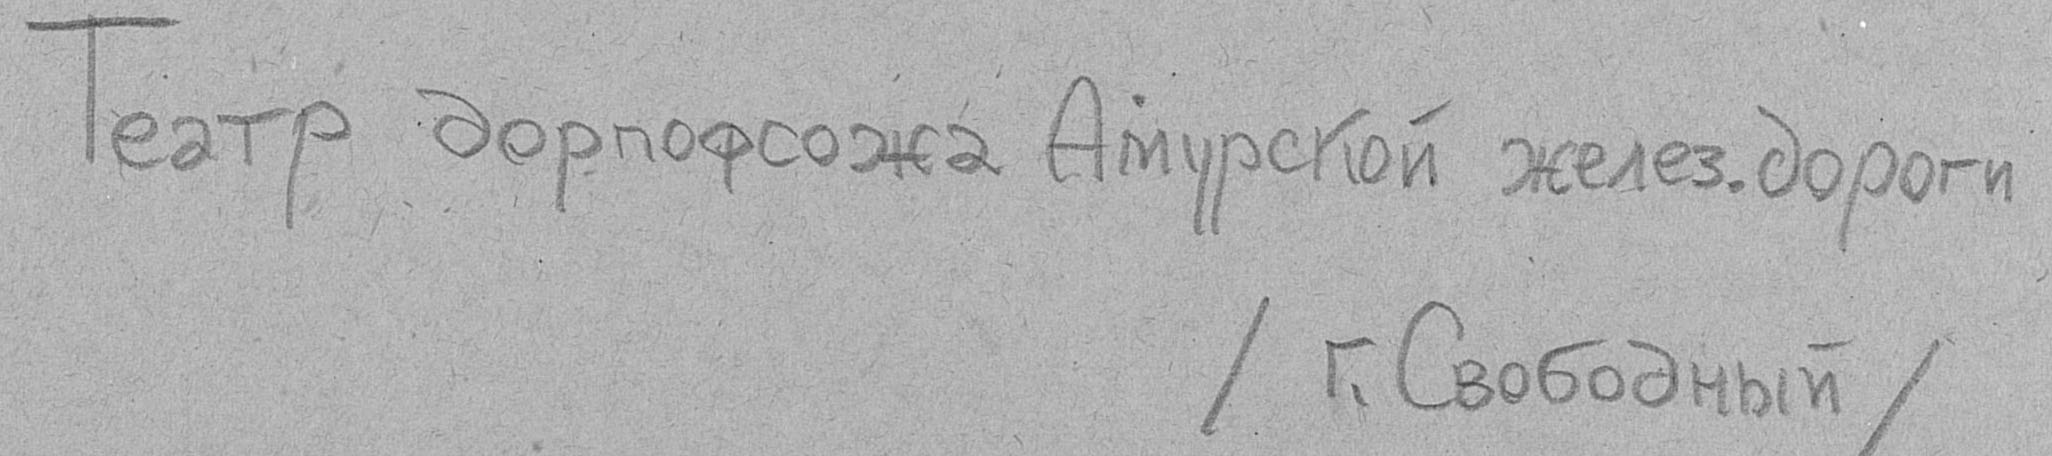 Театр дорпофсожа Амурской желез.дороги
/ г. Свободный /